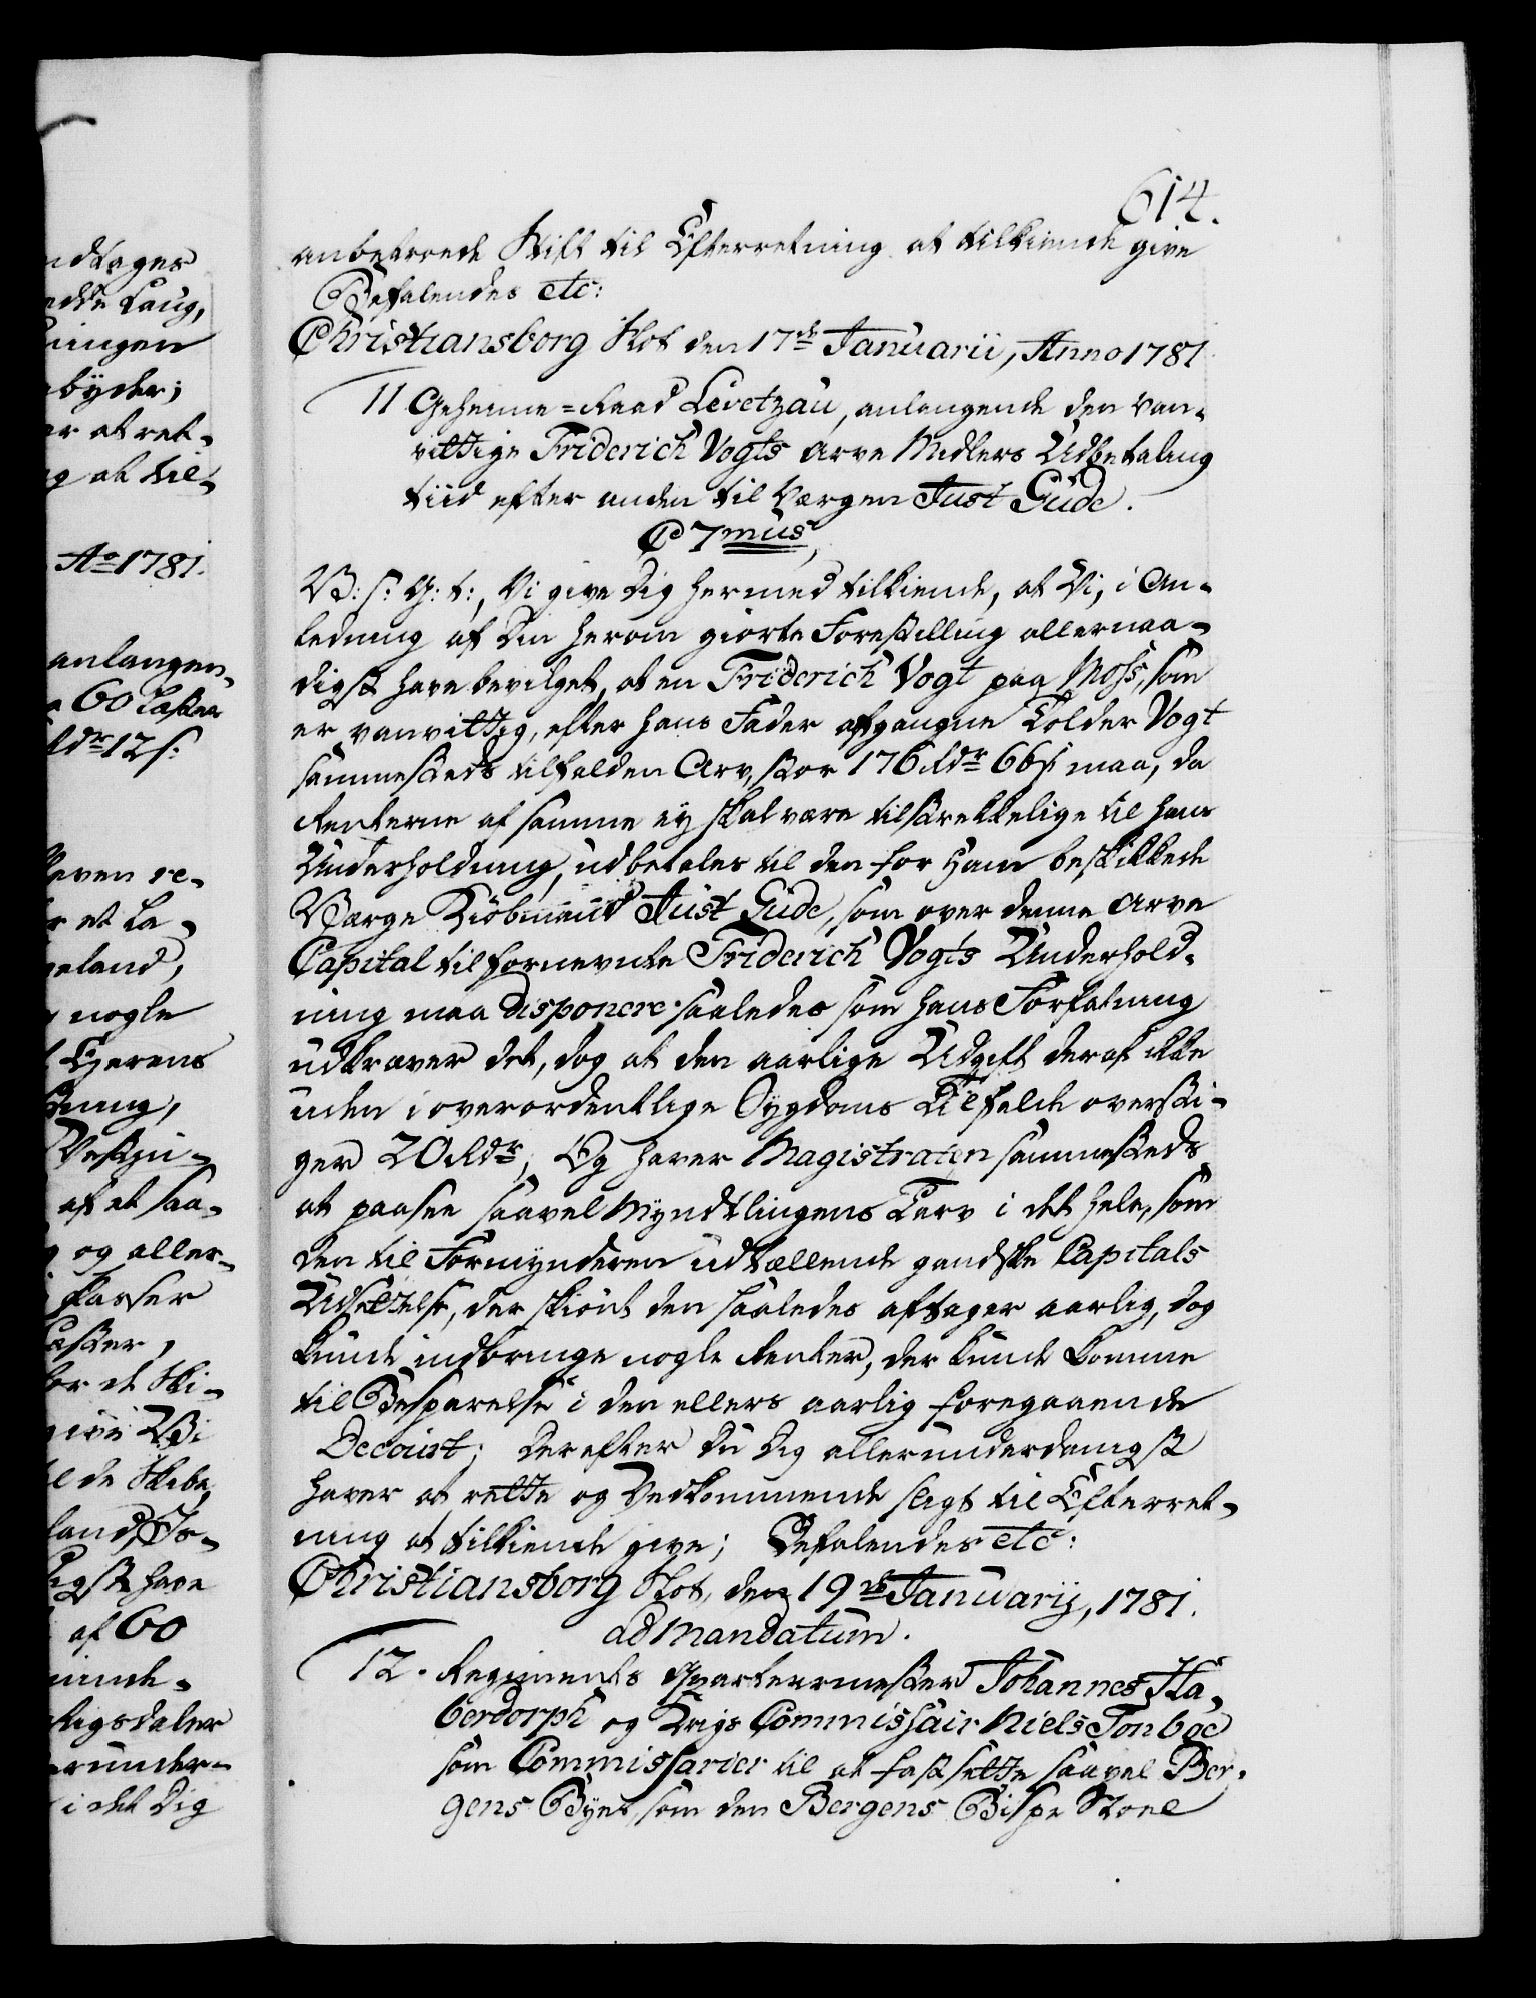 614.
anbetroede Stift til Efterretning at tilkiende give
Befalendes etc:
Christiansborg Slot den 17de Januarii, Anno 1781
11 Geheime=Raad Levetzau, anlangende den van-
vittige Friderich Vogts Arve Midlers Udbetaling
tiid efter anden til Værgen Just Gude.
C 7mus,
V: s: G: t:, Vi give Dig hermed tilkiende, at Vi, i An-
ledning af Din herom giorte Forestilling allernaa-
digst have bevilget, at en Friderich Vogt paa Moss, som
er vanvittig, efter hans Fader afgangne Tolder Vogt
sammesteds tilfalden Arv, stor 176 Rdr 66 s: maa, da
Renterne af samme ey skal være tilstrekkelige til hans
Underholdning, udbetales til den for Ham beskikkede
Værge Kiöbmand Just Gude, som over denne Arve
Capital til fornevnte Friderich Vogts Underhold-
ning maa disponere saaledes som hans Forfatning
udkræver det, dog at den aarlige Udgift deraf ikke
uden i overordentlige Sygdoms Tilfælde oversti-
ger 20 Rdr, Og haver Magistraten sammesteds
at paasee saavel Myndtlingens Tarv i det hele, som
den til Formynderen udtællende gandske Capitals
Udsættelse, der skiönt den saaledes aftager aarlig, dog
kunde indbringe nogle Renter, der kunde komme
til Besparelse i den ellers aarlig foregaaende
Decourt; Derefter Du Dig allerunderdanigst
haver at rette og Vedkommende sligt til Efterret-
ning at tilkiende give; Befalendes etc:
Christiansborg Slot, den 19de Januarij, 1781.
ad Mandatum.
12. Regiments Qvarteermester Johannes Ha-
berdorph og Krigs Commissair Niels Tonboe
som Commissarier til at fastsette saavel Ber-
gens Byes, som den Bergens Bispe Stoel
ndtages
edde Laug,
ningen
byder;
er at ret-
g at til-
Ao 1781.
anlangen-
60 Læster
Rdr 12 s:
even re-
et La-
geland,
nogle
Eyerens
ning,
af et saa-
og aller-
Læster,
or et Ski-
give Vi
el de Skibe,
igst have
af 60
Rigsdaler
erunder-
i det Dig